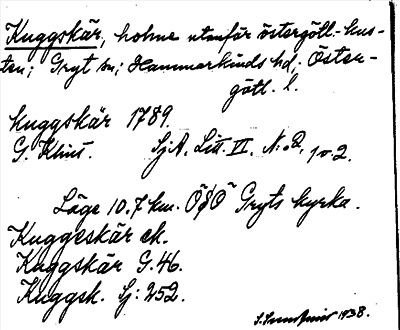 Kuggskär, holme utanför östergötl. kus-
ten; Gryt sn; Hammarkinds hd; Öster-
götl. l.
Kuggskär 1789.
G. Klint. SjA. Litt. VI. N:o 2, 10.2.
Läge 10.7 km. ÖSÖ Gryts kyrka.
Kuggeskär ek.
Kuggskär G. 46.
Kuggsk. Sj: 252.
1938.